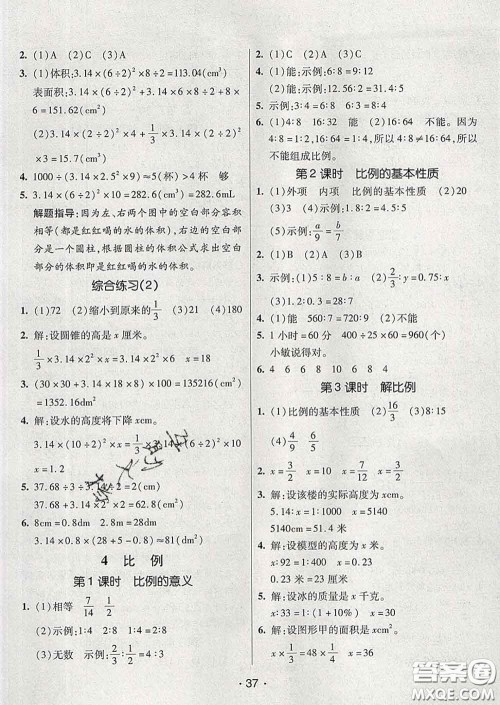 2. (1)A (2)C (3)A
3. (1)体积:3.14×(6÷2)²×8÷2=113.04(cm³)
表面积:3.14×(6÷2)²×2+3.14×6×8
=151.62(cm²)
(2)3.14×(2÷2)²×4+1/3×3.14×(2÷2)²
×3=15.7(cm³)
4. 1000÷(3.14×2.5²×9)≈5(杯)>4杯 够
5. 3.14×(6÷2)²×10=282.6(cm³)=282.6mL
解题指导:因为左、右两个图中的空白部分容积
相等(都是红红喝的水的体积),右边的空白部
分是一个圆柱,根据圆柱的体积公式求出空白
部分的体积即是红红喝的水的体积。
综合练习(2)
1. (1)72 (2)缩小到原来的1/3 (3)21 (4)180
2. 解:设圆锥的高是x厘米。
1/3×3.14×2²x=3.14×2²×6 x=18
3. (30×30+3.14×10²)×100÷1000
4. 解:设水的高度将下降xcm。
3.14×(10÷2)²×x=1/3×3.14×
x=1.2
5. 37.68÷3÷3.14÷2=2(cm)
37.68+3.14×2²×2=62.8(cm²)
6. 8cm=0.8dm 2cm=0.2dm
4 比例
第1课时 比例的意义
1. (1)相等 7/14 1/2
(2)示例:1:4 2:8 1:4=2:8
(3)无数 示例:2/3:1/2=4:3
2. (1)C (2)A
4. (1)能;示例:6:8=9:12
(2)能;示例:12.56:2=31.4:5
5. 示例:6:2 6:3 6:2=9:3
6. (1)4:8 16:32 能 (2)16:64 不能。因
为4:8=1:2,16:64=1:4,4:8≠16:64,所以
不能组成比例。
第2课时 比例的基本性质
1. (1)外项 内项 比例的基本性质 (2)20
(3)120 (4)示例:1.8:2=4.5:5
(5)示例:a/9=b/7
2. (1)B (2)C
3. 示例:(1)5:8=b:a (2)2/3:y=0.75:x
(3)1.2:0.3=10:2.5
4. (1)能 560:7=720:9 (2)能 40
5. 1小时=60分 400÷25×60=960(个)
小敏说得对。
6. 4 6 8 4 6 8
第3课时 解比例
1. (1)比例的基本性质 (2)16/3 (3)8:15
(4)4/9 6/5
2. x=3/2 x=10 x=3/10 x=2/5
3. 解:设该楼的实际高度为x米。
5.14:x=1:1000 x=5140
5140cm=51.4米
4. 解:设模型的高度为x米。
x:92=1:400 x=0.23
0.23米=23厘米
5. 解:设冰的质量是x千克。
x:33=1:(1+10%) x=30
6. 解:设图形甲的面积是xcm²。
x×1/3=48×1/4 x=36
·37·
答案圈
MXQE.COM